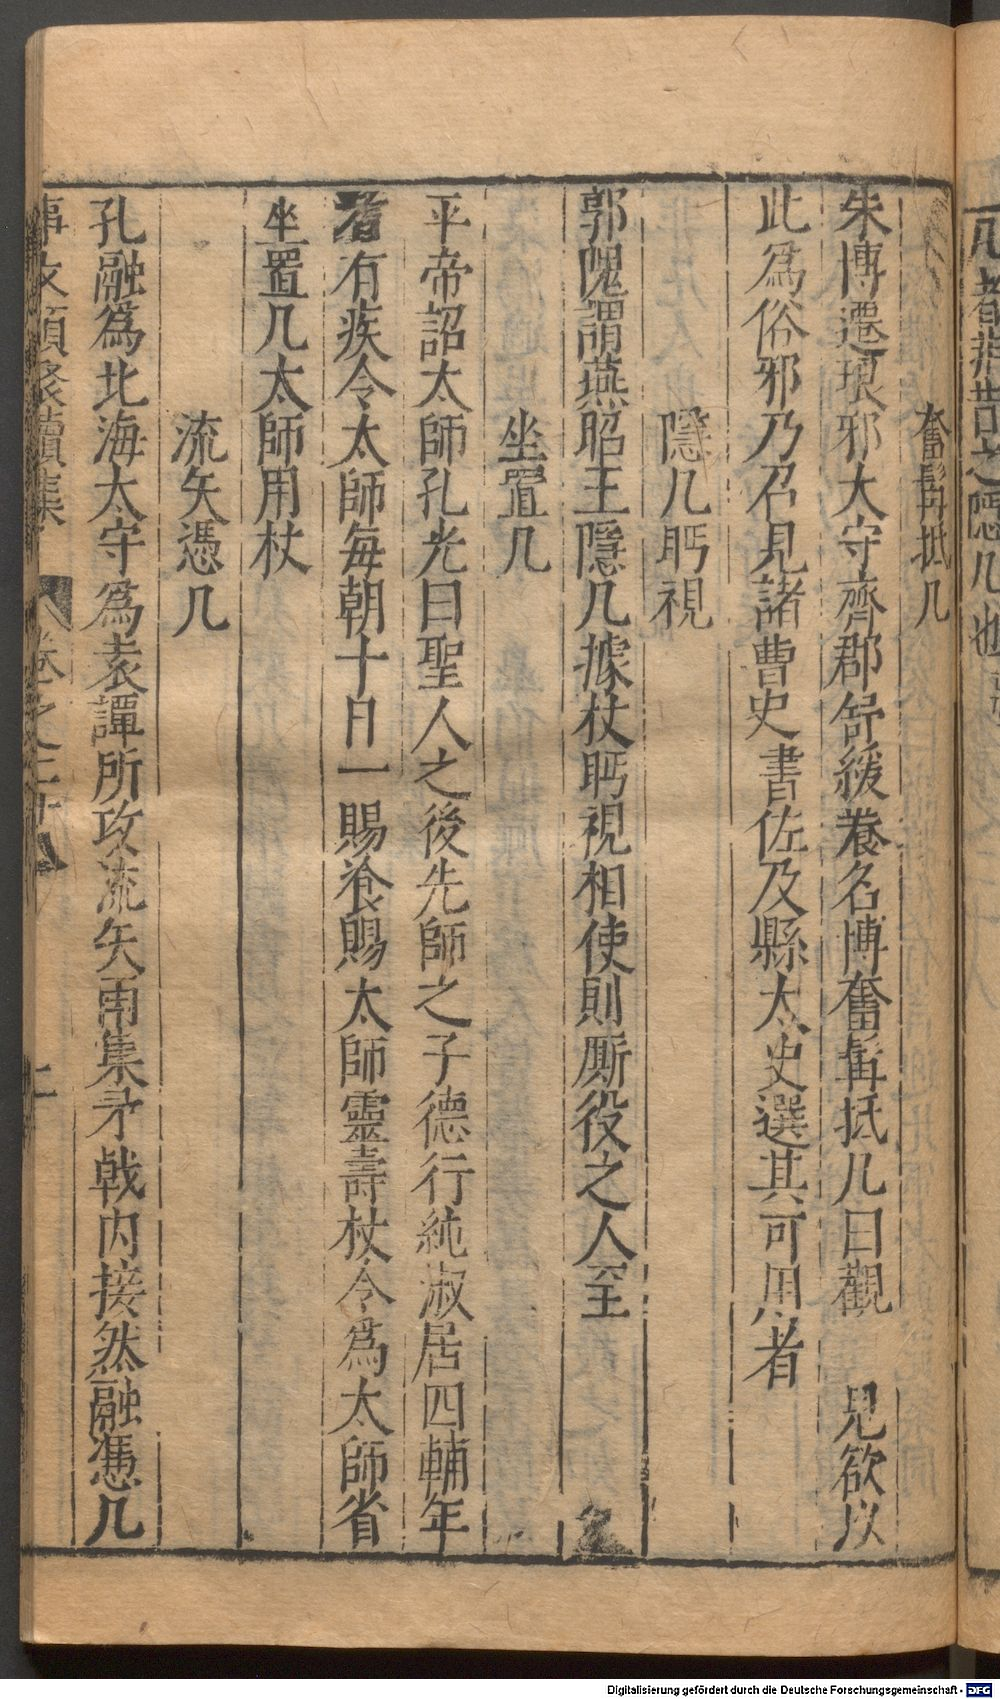 奮髯抵几
朱博遷琅邪太守齊郡舒緩養名博奮髯抵几曰觀 兒欲以
此爲俗邪乃召見諸曹史書佐及縣大史選其可用者
隱几眄視
郭隗謂燕昭王隱几據杖眄視相使則厮役之人至
坐置几
平帝詔太師孔光曰聖人之後先師之子德行純淑居四輔年
有疾令太師每朝十日一賜飡賜太師靈壽杖令爲太師省
坐置几太師用杖
流矢憑几
孔融爲北海太守爲袁譚所攻流矢雨集矛戟內接然融憑几
事文類聚續集 卷之二十八 二
Digitalisierung gefördert durch die Deutsche Forschungsgemeinschaft - DFG